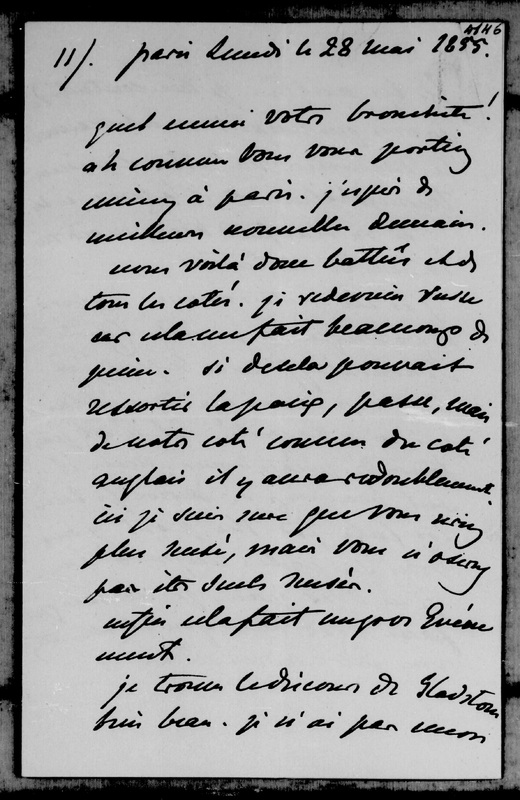 4146
11/. paris lundi le 28 mai 1855.
quel ennui votre bronchite!
ah comme vous vous portiez
mieux à paris. j'espère de
meilleures nouvelles demain.
nous voilà donc battus et de
tous les cotés. je redeviens russe
car cela me fait beaucoup de
peine. si de cela pouvait
ressortir la paix, passe, mais
de notre coté comme du coté
anglais il y aura redoublement.
ici je suis sure que vous seriez
plus sensé, mais vous n'oserez
pas être seuls sensés.
enfin cela fait un gros évène
ment.
je trouve le discours de Gladstone
bien beau. je n'ai pas encore